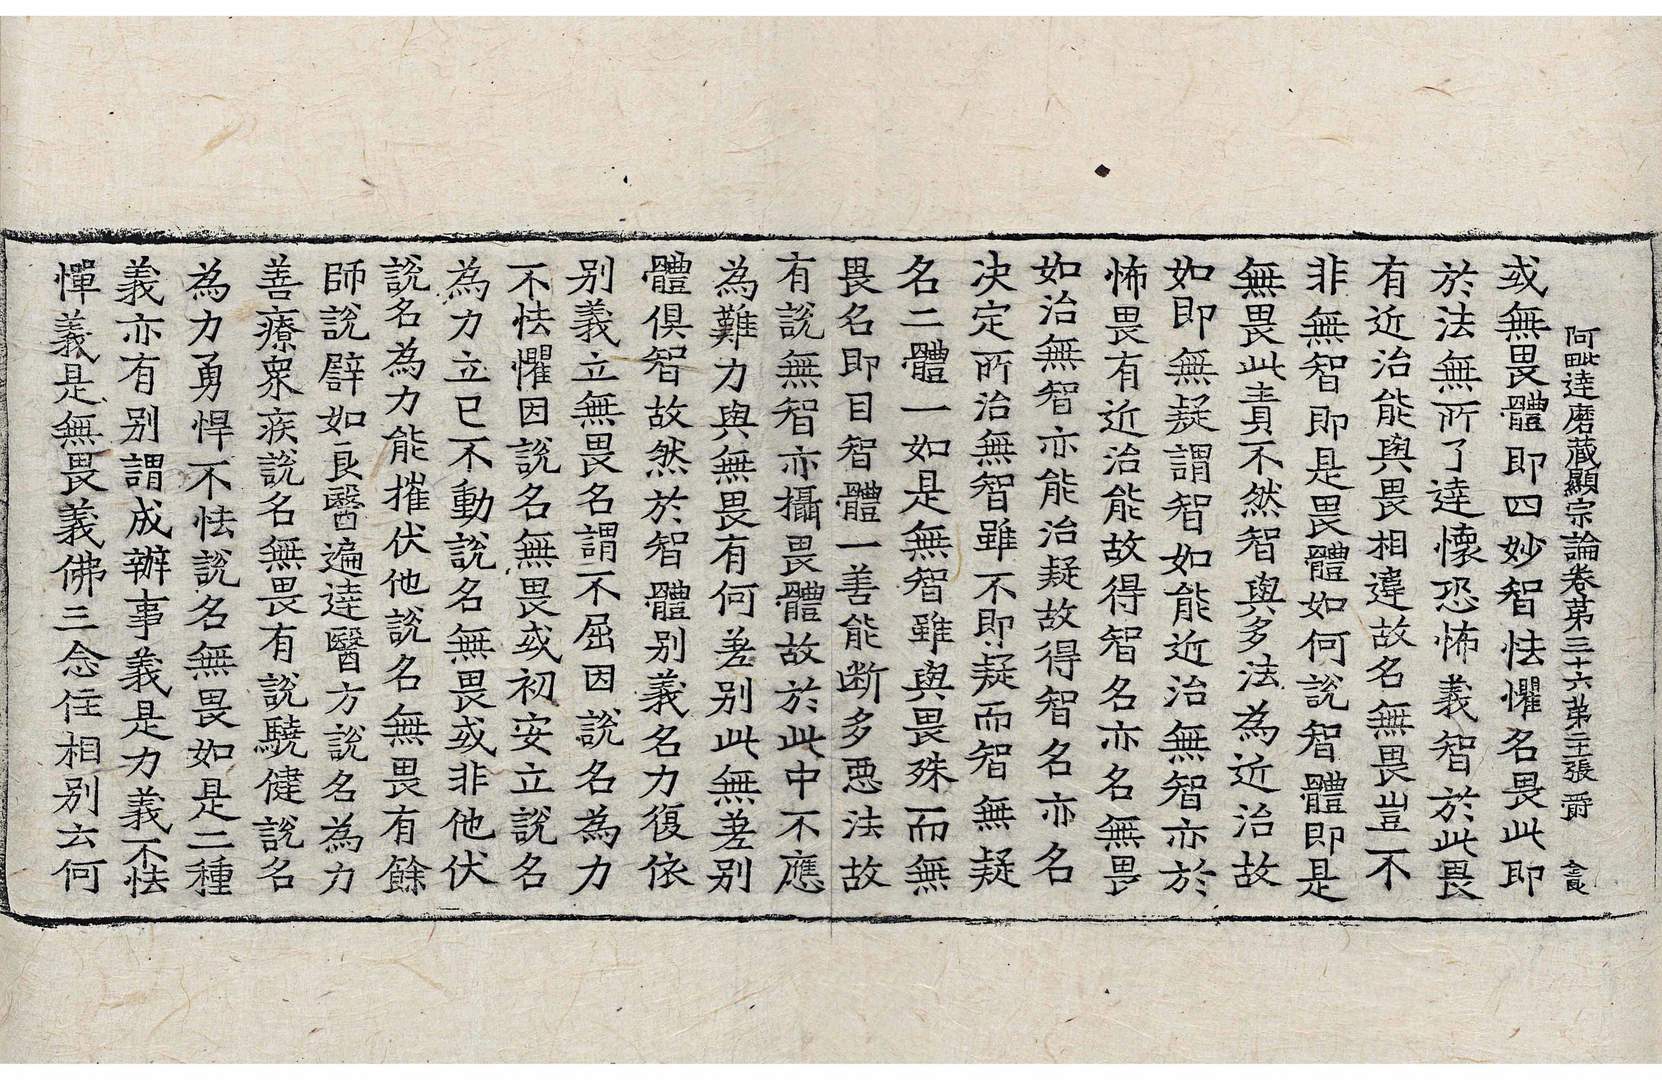 阿毗達磨藏顯宗論卷第三十六 第二十張 爵
或無畏體即四妙智怯懼名畏此即
於法無所了達懷恐怖義智於此畏
有近治能與畏相違故名無畏豈不
非無智即是畏體如何說智體即是
無畏此責不然智與多法為近治故
如即無疑謂智如能近治無智亦於
怖畏有近治能故得智名亦名無畏
如治無智亦能治疑故得智名亦名
決定所治無智雖不即疑而智無疑
名二體一如是無智雖與畏殊而無
畏名即目智體一善能斷多惡法故
有說無智亦攝畏體故於此中不應
為難力與無畏有何差別此無差別
體俱智故然於智體別義名力復依
別義立無畏名謂不屈因說名為力
不怯懼因說名無畏或初安立說名
為力立已不動說名無畏或非他伏
說名為力能摧伏他說名無畏有餘
師說譬如良醫遍達醫方說名為力
善療眾疾說名無畏有說驍健說名
為力勇悍不怯說名無畏如是二種
義亦有別謂成辦事義是力義不怯
憚義是無畏義佛三念住相別云何